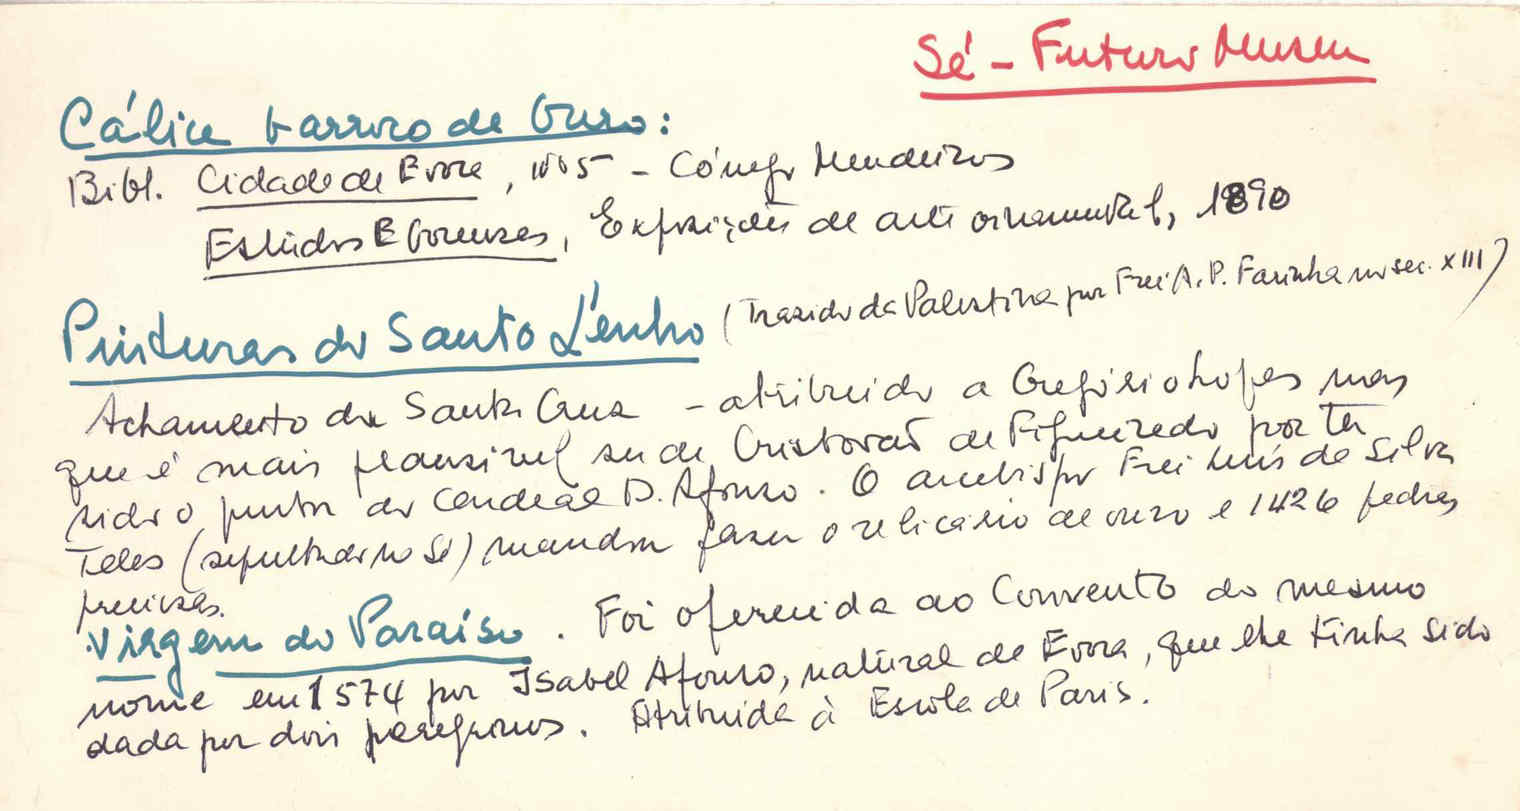 Sé - Futuro Museu
Cálice barroco de Ouro:
Bibl. Cidade de Evora, - Cónego Mendeiros
Estudos Eborenses, Exposições de arte ornamental, 1890
Pinturas do Santo Lenho (Trazido da Palestina por Frei A. P. Farinha no sec. XIII)
Achamento da Santa Cruz - atribuido a Gregório Lopes mas
que é mais plausivel ser de Cristovão de Figueiredo por ter
sido o pintor do Cardeal D. Afonso. O arcebispo Frei Luis da Silva
Teles (sepultado na Sé) mandou fazer o relicário de ouro e 1426 pedras
preciosas.
Virgem do Paraiso. Foi oferecida ao Convento do mesmo
nome em 1574 por Isabel Afonso, natural de Evora, que lhe tinha sido
dada por dois peregrinos. Atribuida à Escola de Paris.